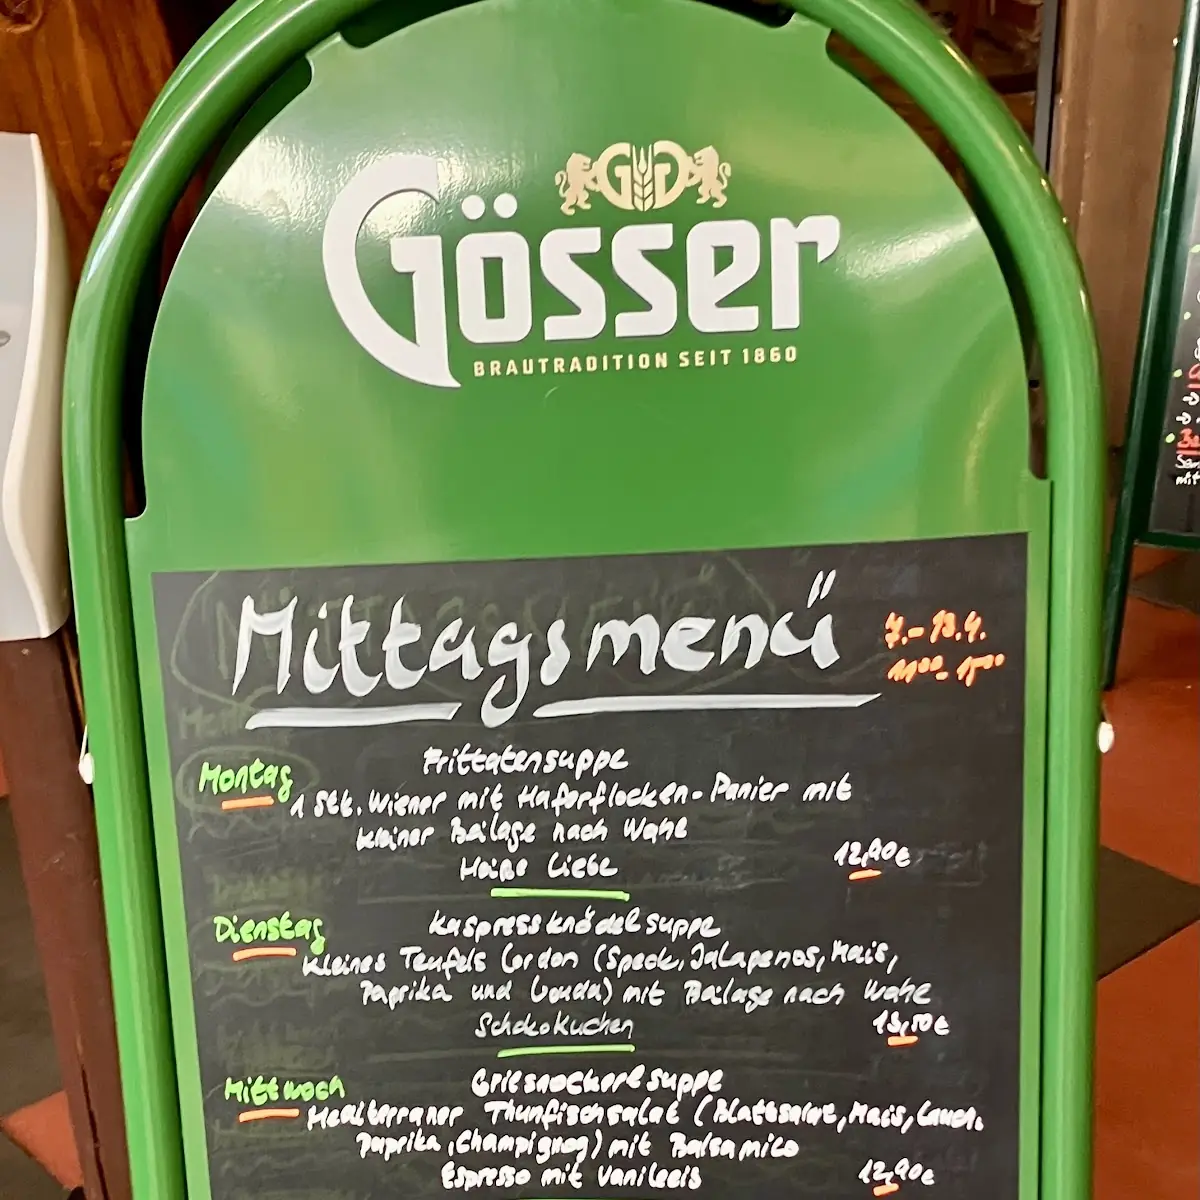 GG
Gösser
BRAUTRADITION SEIT 1860
Mittagsmenü
7.-13.4.
11⁰⁰-15⁰⁰
Montag
Frittatensuppe
1 Stk. Wiener mit Haferflocken-Panier mit
kleiner Beilage nach Wahl
Heiße Liebe
12,90€
Dienstag
Kaspressknödelsuppe
Kleines Teufels Cordon (Speck, Jalapenos, Mais,
Paprika und Gouda) mit Beilage nach Wahl
Schokokuchen
13,50€
Mittwoch
Griesnockerlsuppe
Mediterraner Thunfischsalat (Blattsalat, Mais, Lauch,
Paprika, Champignog) mit Balsamico
Espresso mit Vanilleeis
12,90€